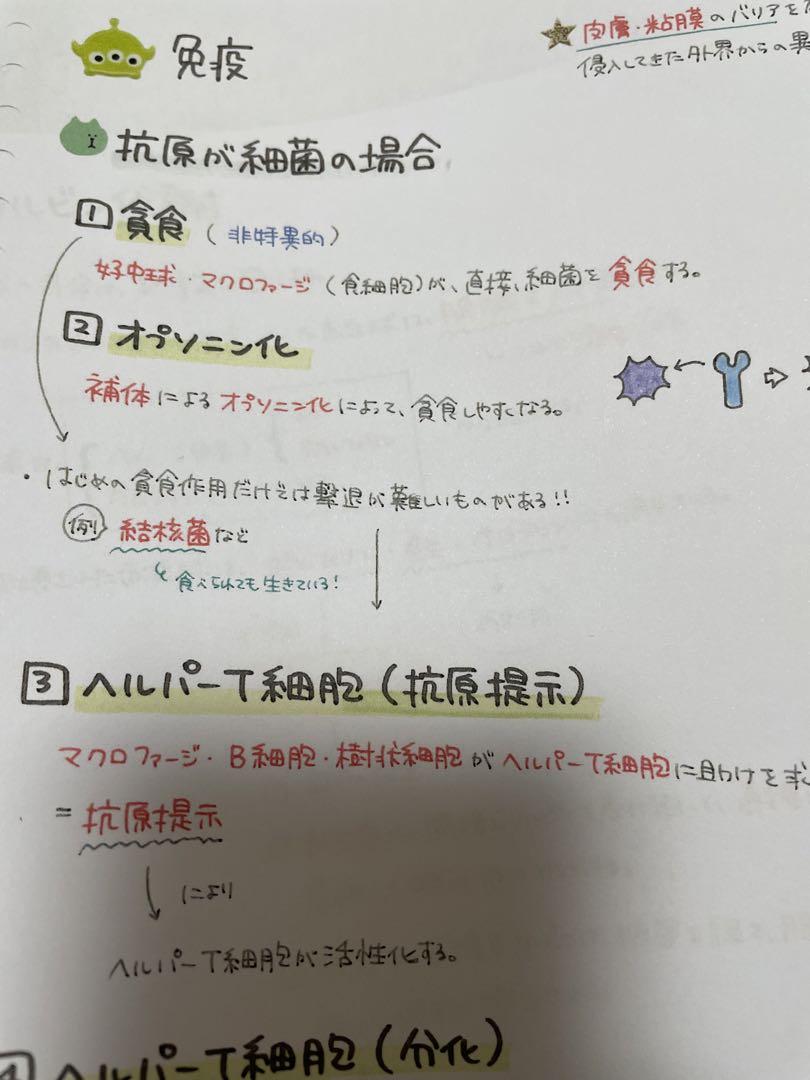 免疫
皮膚・粘膜のバリアを
侵入してきた外界からの異
抗原が細菌の場合
1 貪食 (非特異的)
好中球・マクロファージ(食細胞)が、直接、細菌を貪食する。
2 オプソニン化
補体によるオプソニン化によって、貪食しやすくなる。
・はじめの貪食作用だけでは撃退が難しいものがある!!
例 結核菌など
食べられても生きている!
3 ヘルパーT細胞(抗原提示)
マクロファージ・B細胞・樹状細胞がヘルパーT細胞に助けを求
=抗原提示
↓により
ヘルパーT細胞が活性化する。
4 ヘルパーT細胞(分化)